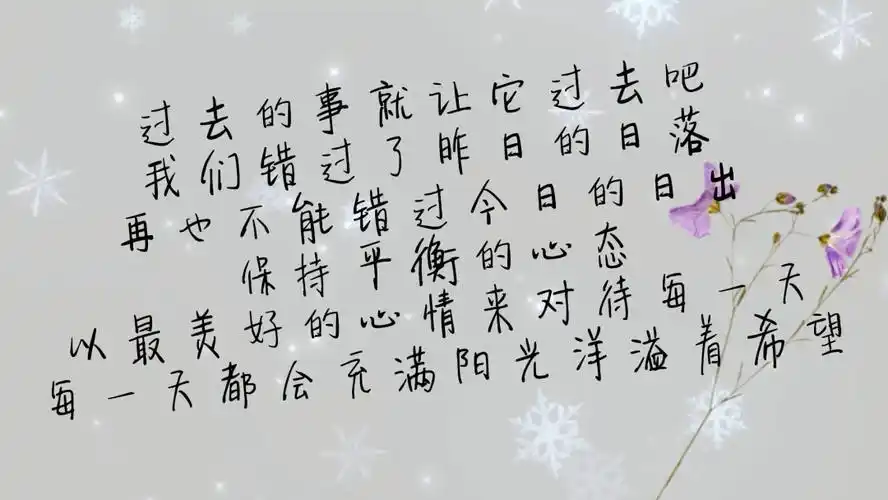 过去的事就让它过去吧
我们错过了昨日的日落
再也不能错过今日的日出
保持平衡的心态
以最美好的心情来对待每一天
每一天都会充满阳光洋溢着希望